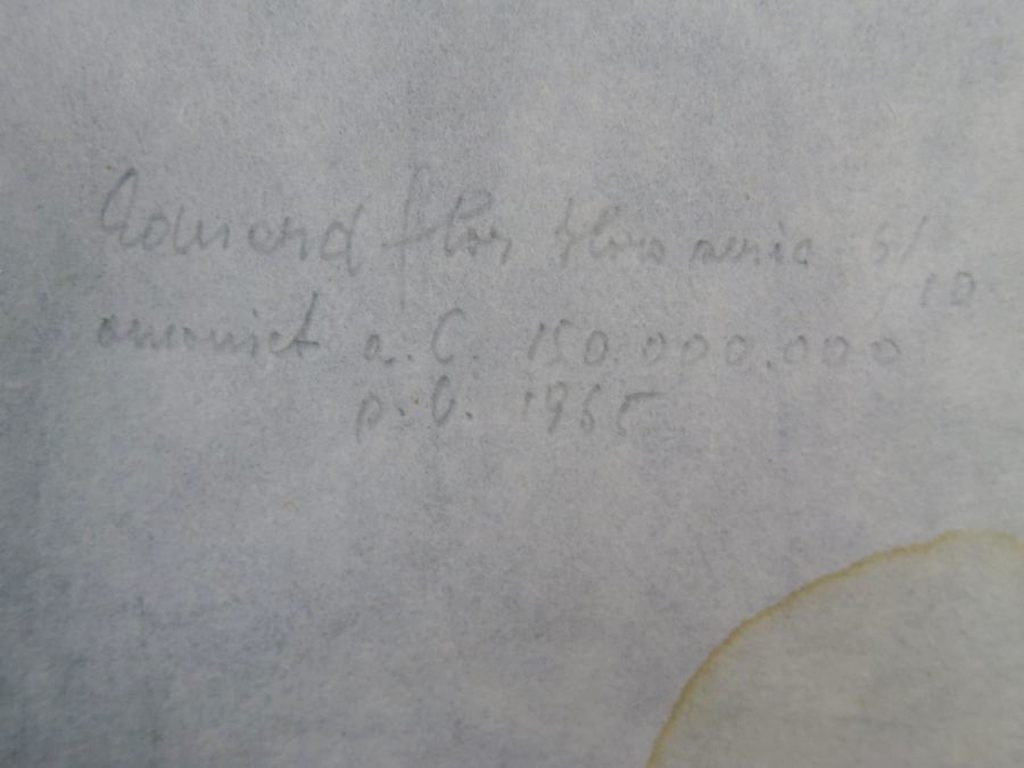 Eduard flor flora serie 5/
10
ammoniet a.C. 150.000.000
p.C. 1965